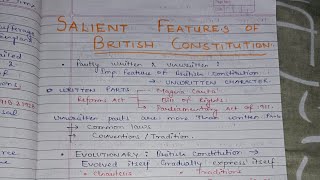 SALIENT FEATURES OF
BRITISH CONSTITUTION
• Partly written & unwritten:
Imp feature of British Constitution
→ UNWRITTEN CHARACTER
WRITTEN PARTS → Magna Carta
Reforms Act → Bill of Rights
→ Parliamentary Act of 1911
Unwritten parts are more than written parts
→ Common laws
→ Conventions/Tradition
• EVOLUTIONARY: British Constitution →
Evolved itself gradually express itself
→ Charters → Traditions